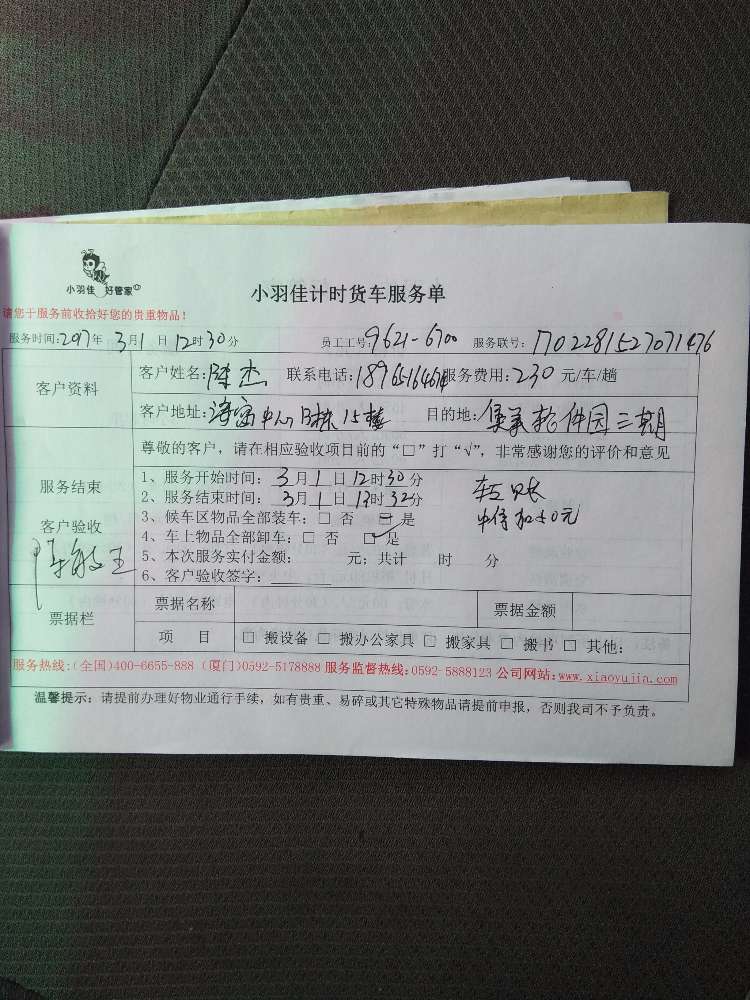 小羽佳 好管家
小羽佳计时货车服务单
请您于服务前收拾好您的贵重物品!
服务时间:2017年 3月1日12时30分 员工工号:9621-6700 服务联号:1702281527071476
客户资料 客户姓名:陈杰 联系电话: 服务费用:230 元/车/趟
客户地址: 中心B栋15楼 目的地: 软件园三期
尊敬的客户,请在相应验收项目前的“□”打“√”,非常感谢您的评价和意见
服务结束
客户验收
1、服务开始时间:3月1日12时30分
2、服务结束时间:3月1日13时32分
3、候车区物品全部装车:□ 否 □ 是
4、车上物品全部卸车:□ 否 □ 是
5、本次服务实付金额: 元;共计 时 分
6、客户验收签字:
加50元
票据栏 票据名称 票据金额
项 目 □ 搬设备 □ 搬办公家具 □ 搬家具 □ 搬书 □ 其他:
服务热线:(全国)400-6655-888 (厦门)0592-5178888 服务监督热线:0592-5888123 公司网站:www.xiaoyujia.com
温馨提示:请提前办理好物业通行手续,如有贵重、易碎或其它特殊物品请提前申报,否则我司不予负责。